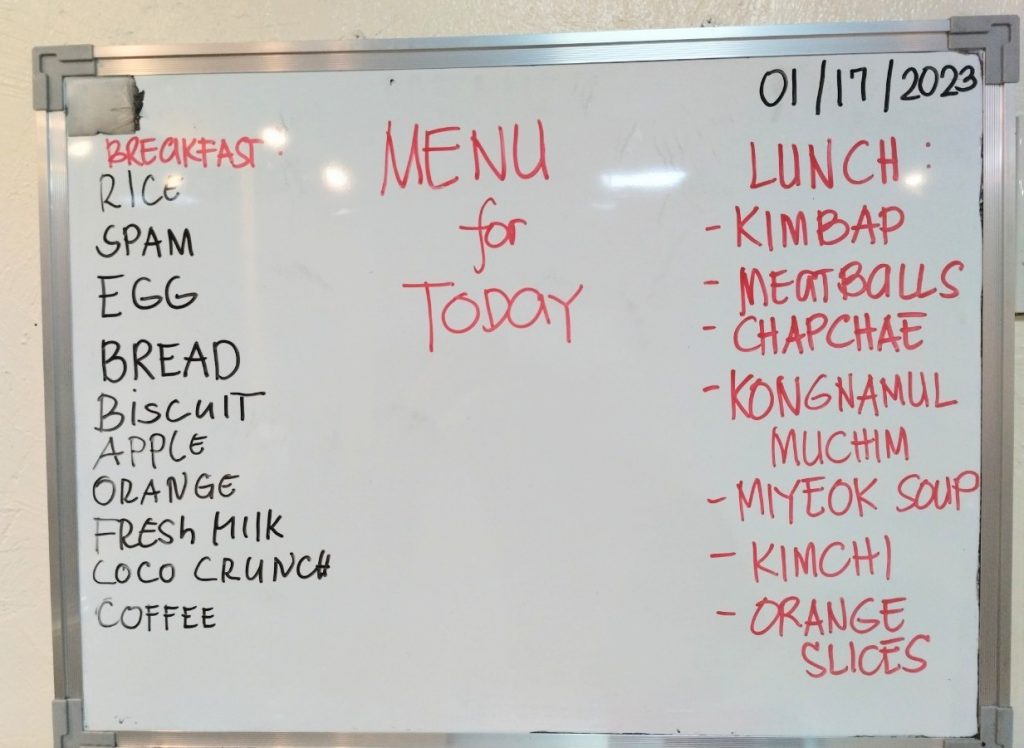 01/17/2023
MENU
for
TODAY
BREAKFAST:
RICE
SPAM
EGG
BREAD
BISCUIT
APPLE
ORANGE
FRESH MILK
COCO CRUNCH
COFFEE
LUNCH:
- KIMBAP
- MEATBALLS
- CHAPCHAE
- KONGNAMUL
MUCHIM
- MIYEOK SOUP
- KIMCHI
- ORANGE
SLICES